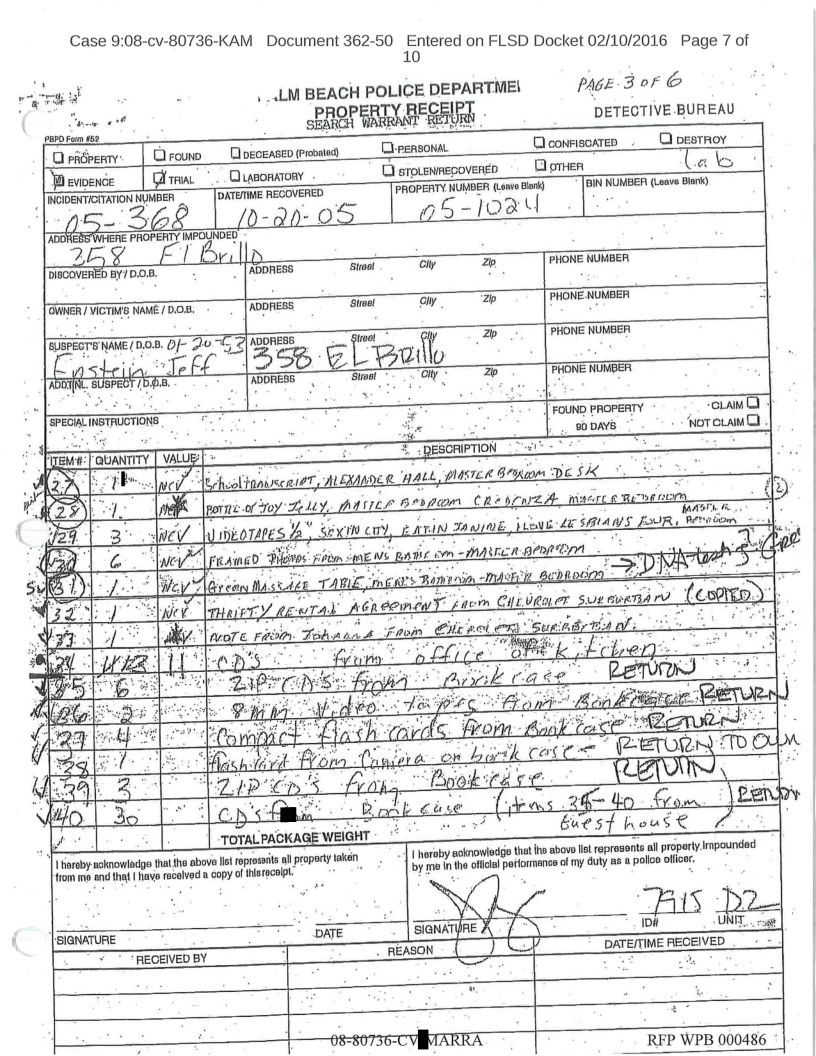 Case 9:08-cv-80736-KAM Document 362-50 Entered on FLSD Docket 02/10/2016 Page 7 of
10
LM BEACH POLICE DEPARTME
PAGE 3 OF 6
PROPERTY RECEIPT
SEARCH WARRANT RETURN
DETECTIVE BUREAU
PBPD Form #52
PROPERTY FOUND DECEASED (Probated) PERSONAL CONFISCATED DESTROY
EVIDENCE TRIAL LABORATORY STOLEN/RECOVERED OTHER Lab
INCIDENT/CITATION NUMBER DATE/TIME RECOVERED PROPERTY NUMBER (Leave Blank) BIN NUMBER (Leave Blank)
05-368 10-20-05 05-1024
ADDRESS WHERE PROPERTY IMPOUNDED
358 El Brillo
DISCOVERED BY / D.O.B. ADDRESS Street City Zip PHONE NUMBER
OWNER / VICTIM'S NAME / D.O.B. ADDRESS Street City Zip PHONE NUMBER
SUSPECT'S NAME / D.O.B. 01-20-53 ADDRESS Street City Zip PHONE NUMBER
Epstein Jeff 358 EL Brillo
ADDT'NL. SUSPECT / D.O.B. ADDRESS Street City Zip PHONE NUMBER
SPECIAL INSTRUCTIONS
FOUND PROPERTY CLAIM
90 DAYS NOT CLAIM
ITEM# QUANTITY VALUE DESCRIPTION
27 1 NCV School TRANSCRIPT, ALEXANDER HALL, MASTER BEDROOM DESK
28 1 BOTTLE OF JOY JELLY, MASTER BEDROOM CREDENZA MASTER BEDROOM (2)
29 3 NCV VIDEOTAPES 1/2", SEX IN CITY, EATIN JANINE, I LOVE LESBIANS FOUR, MASTER BEDROOM
30 6 NCV FRAMED PHOTOS FROM MENS BATHROOM-MASTER BEDROOM
31 1 NCV GREEN MASSAGE TABLE, MEN'S BATHROOM-MASTER BEDROOM → DNA
32 1 NCV THRIFTY RENTAL AGREEMENT FROM CHEVROLET SUBURBAN (COPIED)
33 1 NOTE FROM JOHANNA FROM CHEVROLET SUBURBAN.
34 CD's from office of kitchen
35 6 ZIP CD's from Book case RETURN
36 2 8mm Video tapes from Bookcase RETURN
37 4 Compact flash cards from Book case RETURN
38 1 flash card from Camera on book case - RETURN TO OWN
39 3 ZIP CD's from Bookcase RETURN
40 30 CD's Book case (items 35-40 from RETURN
Guest house
TOTAL PACKAGE WEIGHT
I hereby acknowledge that the above list represents all property taken
from me and that I have received a copy of this receipt.
I hereby acknowledge that the above list represents all property impounded
by me in the official performance of my duty as a police officer.
7915 D2
SIGNATURE DATE SIGNATURE ID# UNIT
RECEIVED BY REASON DATE/TIME RECEIVED
08-80736-CV MARRA RFP WPB 000486